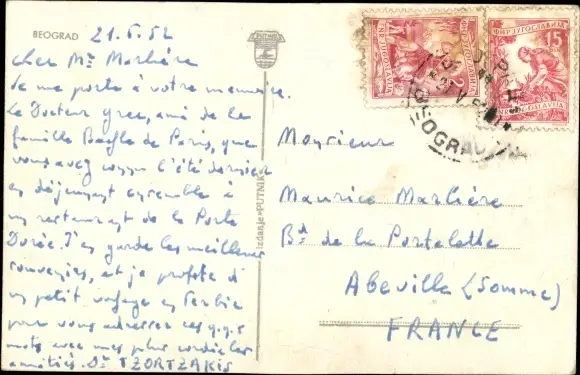 BEOGRAD 21.5.52
Cher Mr Marlière
Je me porte à votre mémoire.
le Docteur grec, ami de la
famille de Paris, que
vous avez connu l'été dernier
en déjeunant ensemble à
un restaurant de la Porte
Dorée. J'en garde les meilleurs
souvenirs, et je profite d'
un petit voyage en Serbie
pour vous adresser ces q.q.s
mots avec mes plus cordiales
amitiés. Dr TZORTZAKIS
PUTNIK
Izdanje »PUTNIK«
ФНР ЈУГОСЛАВИЈА
FNR JUGOSLAVIJA
2
ФНР ЈУГОСЛАВИЈА
15
JUGOSLAVIJA
BEOGRAD
Monsieur
Maurice Marlière
Bd de la Portelette
Abeville (Somme)
FRANCE